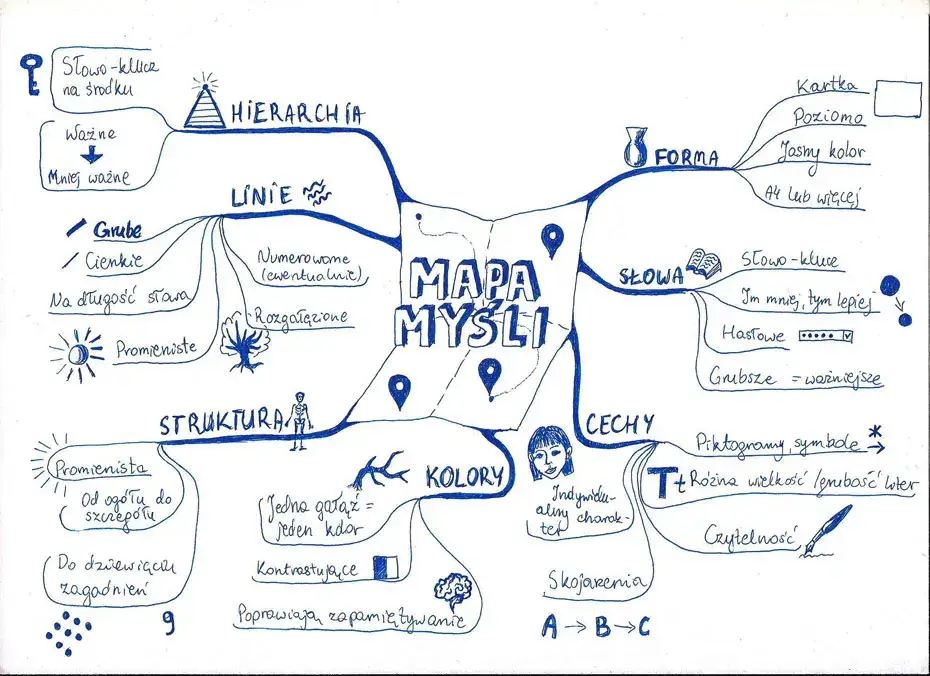 MAPA
MYŚLI
HIERARCHIA
Słowo-klucz
na środku
Ważne
Mniej ważne
LINIE
Grube
Cienkie
Na długość słowa
Promieniste
Numerowane
(ewentualnie)
Rozgałęzione
STRUKTURA
Promienista
Od ogółu do
szczegółu
Do dziewięciu
zagadnień
9
KOLORY
Jedna gałąź =
jeden kolor
Kontrastujące
Poprawiają zapamiętywanie
FORMA
Kartka
Poziomo
Jasny kolor
A4 lub więcej
SŁOWA
Słowo-klucz
Im mniej, tym lepiej
Hasłowe
Grubsze = ważniejsze
CECHY
Piktogramy, symbole * →
T t Różna wielkość/grubość liter
Czytelność
Indywidu-
alny charak-
ter
Skojarzenia
A → B → C